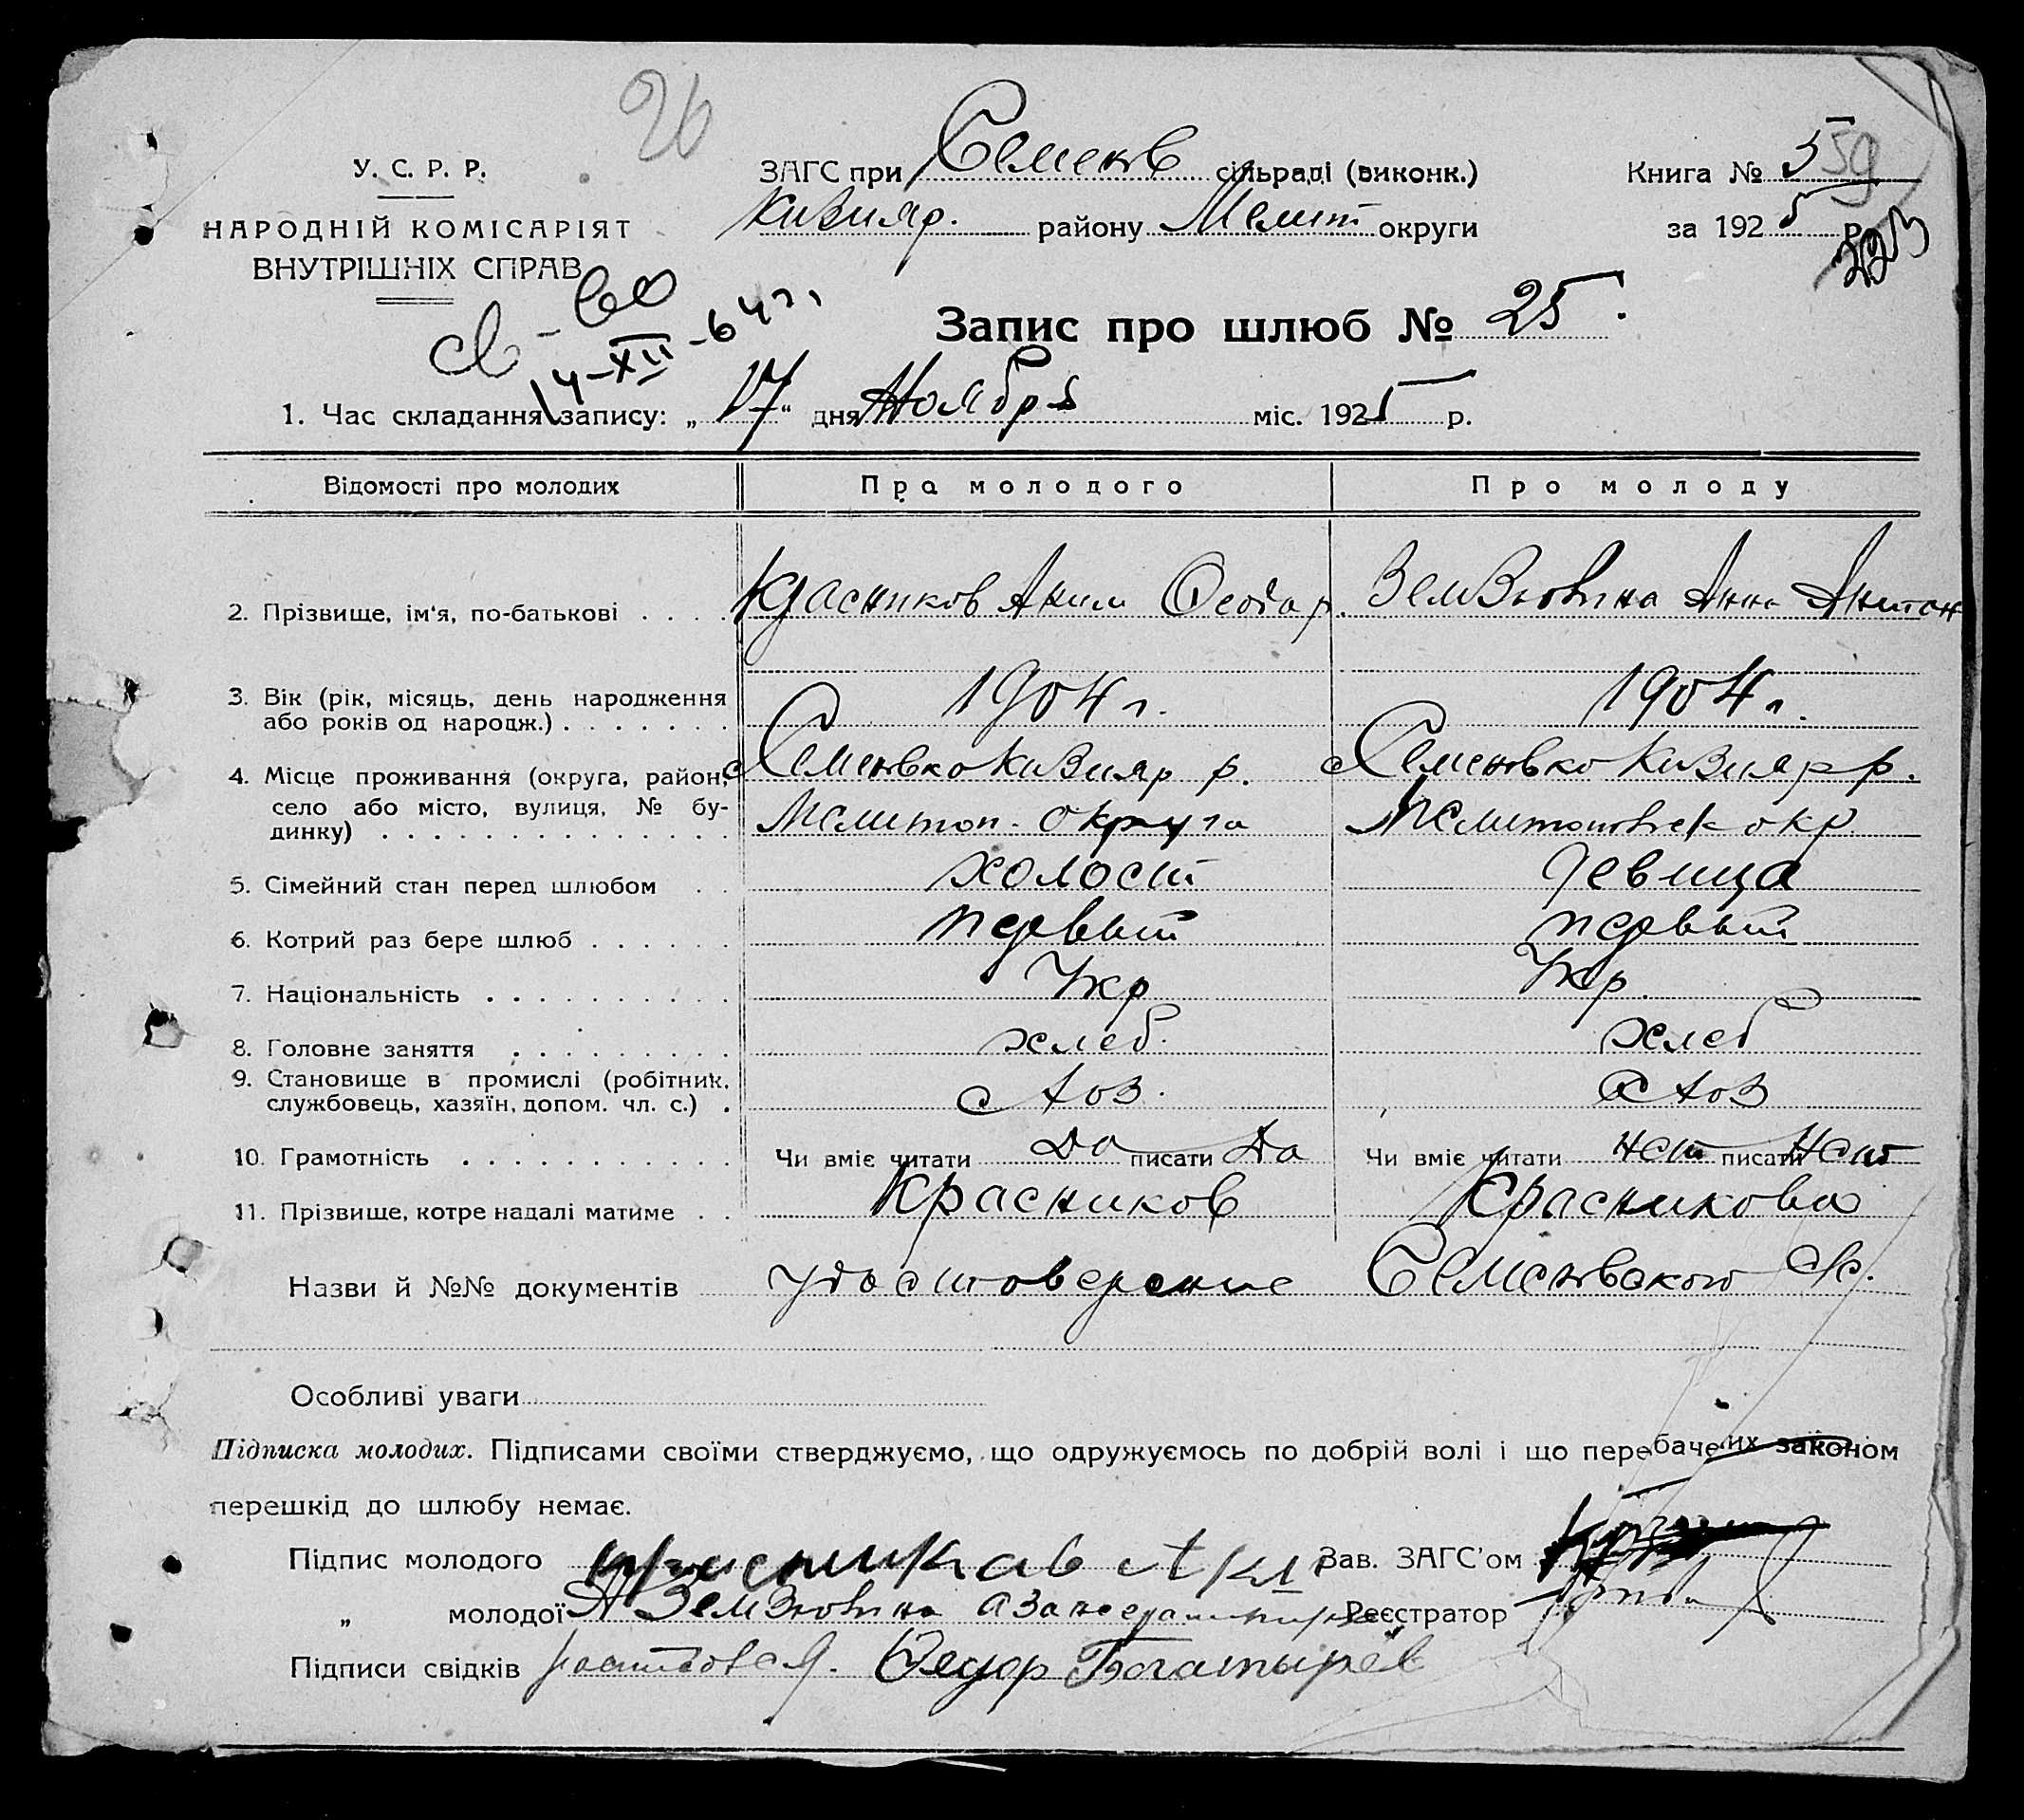 26
У. С. Р. Р.
НАРОДНІЙ КОМІСАРІЯТ
ВНУТРІШНІХ СПРАВ
ЗАГС при Семенв сільраді (виконк.)
Кизияр. району Мелит округи
Книга № 5 59
за 1925 р.
223
св-во
14-XII-64 г.
Запис про шлюб № 25.
1. Час складання запису: „17“ дня Ноября міс. 1925 р.
Відомості про молодих Про молодого Про молоду
2. Прізвище, ім‘я, по-батькові . . . . Красников Аким Феодор. Земзюлина Анна Антон
3. Вік (рік, місяць, день народження
або років од народж.) . . . . . . . 1904 г. 1904 г.
4. Місце проживання (округа, район, с Семеновко Кизияр р. с Семеновко Кизияр р.
село або місто, вулиця, № бу-
динку) . . . . . . . . . . . . . . . Мелитоп. округа Мелитоповск окр
5. Сімейний стан перед шлюбом . . холост девица
6. Котрий раз бере шлюб . . . . . . первый первый
7. Національність . . . . . . . . . . . Укр Укр.
8. Головне заняття . . . . . . . . . . хлеб. хлеб
9. Становище в промислі (робітник,
службовець, хазяїн, допом. чл. с.) .
10. Грамотність . . . . . . . . . . . . Чи вміє читати Да писати Да Чи вміє читати нет писати Нет
11. Прізвище, котре надалі матиме . . Красников Красникова
Назви й №№ документів удостоверение Семеновского с/с.
Особливі уваги
Підписка молодих. Підписами своїми стверджуємо, що одружуємось по добрій волі і що перебачених законом
перешкід до шлюбу немає.
Підпис молодого Красникав Аким Зав. ЗАГС’ом
„ молодої А Земзюлина а за неграмотную Реєстратор
Підписи свідків Федор Богатырёв